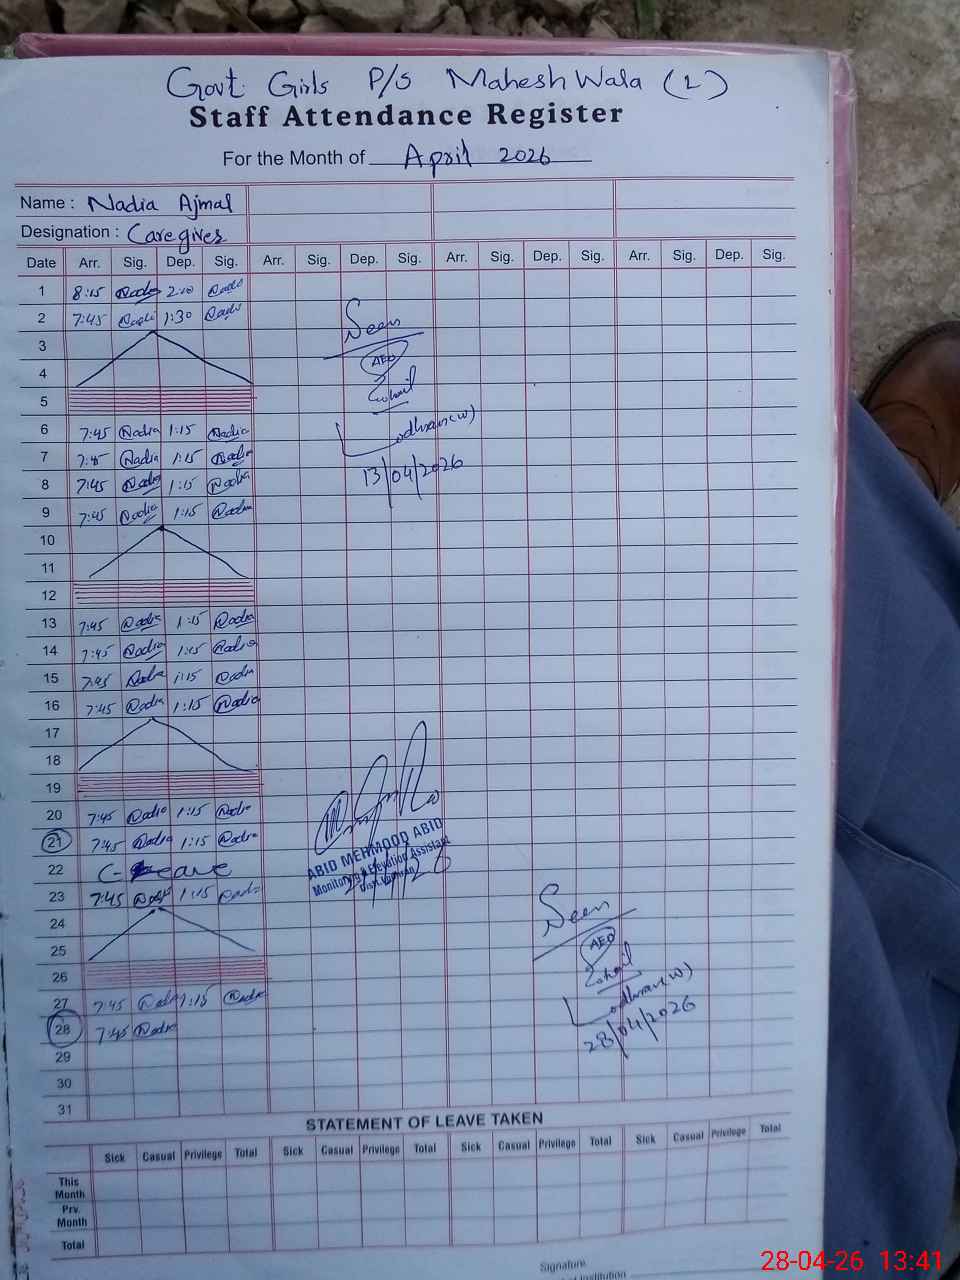 Govt. Girls P/S Mahesh Wala (1)
Staff Attendance Register
For the Month of April 2026
Name : Nadia Ajmal
Designation : Caregiver
Date Arr. Sig. Dep. Sig. Arr. Sig. Dep. Sig. Arr. Sig. Dep. Sig. Arr. Sig. Dep. Sig.
1 8:15 Nadia 2:00 Nadia
2 7:45 Nadia 1:30 Nadia
Seen
3
AEO
4
Sohail
5
6 7:45 Nadia 1:15 Nadia
Lodhran(w)
7 7:45 Nadia 1:15 Nadia
13/04/2026
8 7:45 Nadia 1:15 Nadia
9 7:45 Nadia 1:15 Nadia
10
11
12
13 7:45 Nadia 1:15 Nadia
14 7:45 Nadia 1:15 Nadia
15 7:45 Nadia 1:15 Nadia
16 7:45 Nadia 1:15 Nadia
17
18
19
20 7:45 Nadia 1:15 Nadia
21 7:45 Nadia 1:15 Nadia
ABID MEHMOOD ABID
22 C-Leave
Monitoring & Elevation Assistant
23 7:45 Nadia 1:15 Nadia
Seen
24
AEO
25
Sohail
26
Lodhran(w)
27 7:45 Nadia 1:15 Nadia
28/04/2026
28 7:45 Nadia
29
30
31
STATEMENT OF LEAVE TAKEN
Sick Casual Privilege Total Sick Casual Privilege Total Sick Casual Privilege Total Sick Casual Privilege Total
This Month
Prv. Month
Total
Signature
28-04-26 13:41